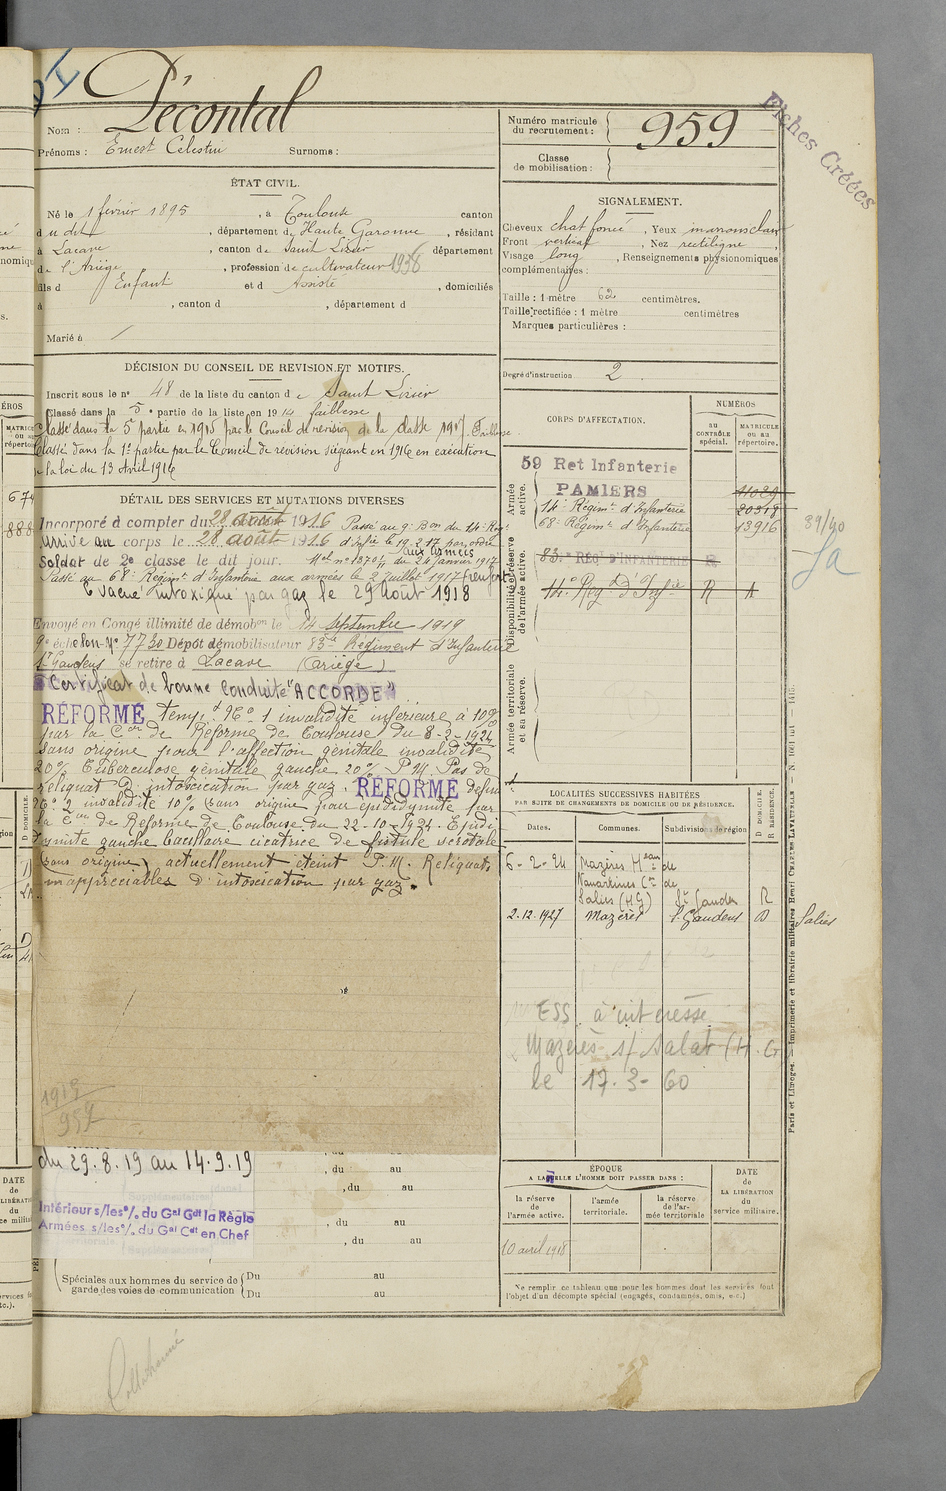 Nom : Décontal
Prénoms : Ernest Celestin Surnoms :
Numéro matricule du recrutement : 959
Classe de mobilisation :
Fiches Créées
ÉTAT CIVIL.
Né le 1 février 1895, à Toulouse canton
du dit, département de Haute Garonne, résidant
à Lacave, canton de Saint Lizier département
de l'Ariège, profession de cultivateur 1938
fils d Enfant et d Assisté, domiciliés
à , canton d , département d
Marié à
SIGNALEMENT.
Cheveux chat foncé, Yeux marrons clair
Front vertical, Nez rectiligne,
Visage long, Renseignements physionomiques
complémentaires :
Taille : 1 mètre 62 centimètres.
Taille rectifiée : 1 mètre centimètres
Marques particulières :
Degré d'instruction 2
DÉCISION DU CONSEIL DE REVISION ET MOTIFS.
Inscrit sous le n° 48 de la liste du canton de Saint Lizier
Classé dans la 5e partie de la liste en 1914 faiblesse
Classé dans la 5 partie en 1915 par le Conseil de revision de la classe 1917. Faiblesse
Classé dans la 1e partie par le Conseil de revision siégeant en 1916 en exécution
de la loi du 13 Avril 1916
DÉTAIL DES SERVICES ET MUTATIONS DIVERSES
Incorporé à compter du 28 août 1916 Passé au 9e Bon du 14e Regt
Arrivé au corps le 28 août 1916 d'Infie le 19-2-17 par ordre
Soldat de 2e classe le dit jour. Mel n° 1370/11 du 24 janvier 1917 aux armées
Passé au 68e Régimt d'Infanterie aux armées le 2 juillet 1917 (renfort)
Evacué intoxiqué par gaz le 29 Août 1918
Envoyé en Congé illimité de démobon le 14 Septembre 1919
9e échelon N° 7730 Dépôt démobilisateur 83e Régiment d'Infanterie
St Gaudens se retire à Lacave (Ariège)
Certificat de bonne conduite "ACCORDÉ"
RÉFORMÉ temp. N° 1 invalidité inférieure à 10%
par la Con de Réforme de Toulouse du 8-2-1924
sans origine pour l'affection génitale invalidité
20% Tuberculose génitale gauche 20% P.M. Pas de
reliquat d'intoxication par gaz. RÉFORMÉ défin
N° 2 invalidité 10% (sans origine pour épididymite par
la Con de Réforme de Toulouse du 22-10-1924. Epidi
dymite gauche bacillaire cicatrice de fistule scrotale
(sans origine) actuellement éteint P.M. Reliquats
inappréciables d'intoxication par gaz.
1915
959
CORPS D'AFFECTATION.
NUMÉROS
au CONTRÔLE spécial.
MATRICULE ou au répertoire.
Armée active.
59 Ret Infanterie
PAMIERS 11029
14e Régimt d'Infanterie 20319
68e Régimt d'Infanterie 13916
Disponibilité et réserve de l'armée active.
83e REG D'INFANTERIE R
14e Regt d'Infie R A
39/40
Armée territoriale et sa réserve.
LOCALITÉS SUCCESSIVES HABITÉES
PAR SUITE DE CHANGEMENTS DE DOMICILE OU DE RÉSIDENCE.
Dates. Communes. Subdivisions de région
D DOMICILE. R RÉSIDENCE.
6-2-24 Mazères Heau de
Cne de
Salies (HG) St Gaudens R
2.12.1927 Mazères St Gaudens D Salies
ESS à intéressé
Mazères s/ Salat (H.G)
le 17-3-60
du 29.8.19 au 14.9.19
Intérieur s/les o/. du Gal Gdt la Régie
Armées s/les o/. du Gal Cdt en Chef
, du au
, du au
, du au
, du au
Spéciales aux hommes du service de garde des voies de communication { Du au
Du au
ÉPOQUE
A LAQUELLE L'HOMME DOIT PASSER DANS :
la réserve de l'armée active.
l'armée territoriale.
la réserve de l'armée territoriale
DATE DE LA LIBÉRATION du service militaire.
10 avril 1918
Ne remplir ce tableau que pour les hommes dont les services font
l'objet d'un décompte spécial (engagés, condamnés, omis, etc.)
Paris et Limoges. — Imprimerie et librairie militaires Henri CHARLES-LAVAUZELLE